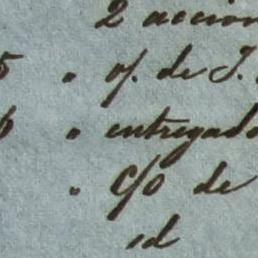 2 accion
5 " of. de J.
6 " entregado
" c/o de
id